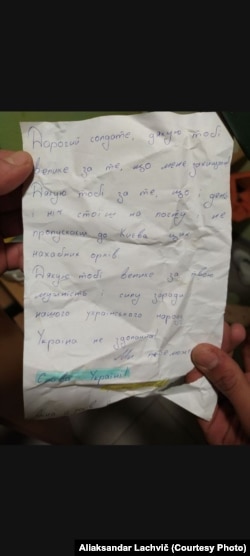 Дорогий солдате, дякую тобі
велике за те, що мене захищаєш
Дякую тобі за те, що день
і ніч стоїш на посту і не
пропускаєш до Києва цих
нахабних орків
Дякую тобі велике за твою
мужність і силу заради
нашого українського народу
Україна не здолати!
Ми
Слава Україні!
Aliaksandar Lachvič (Courtesy Photo)